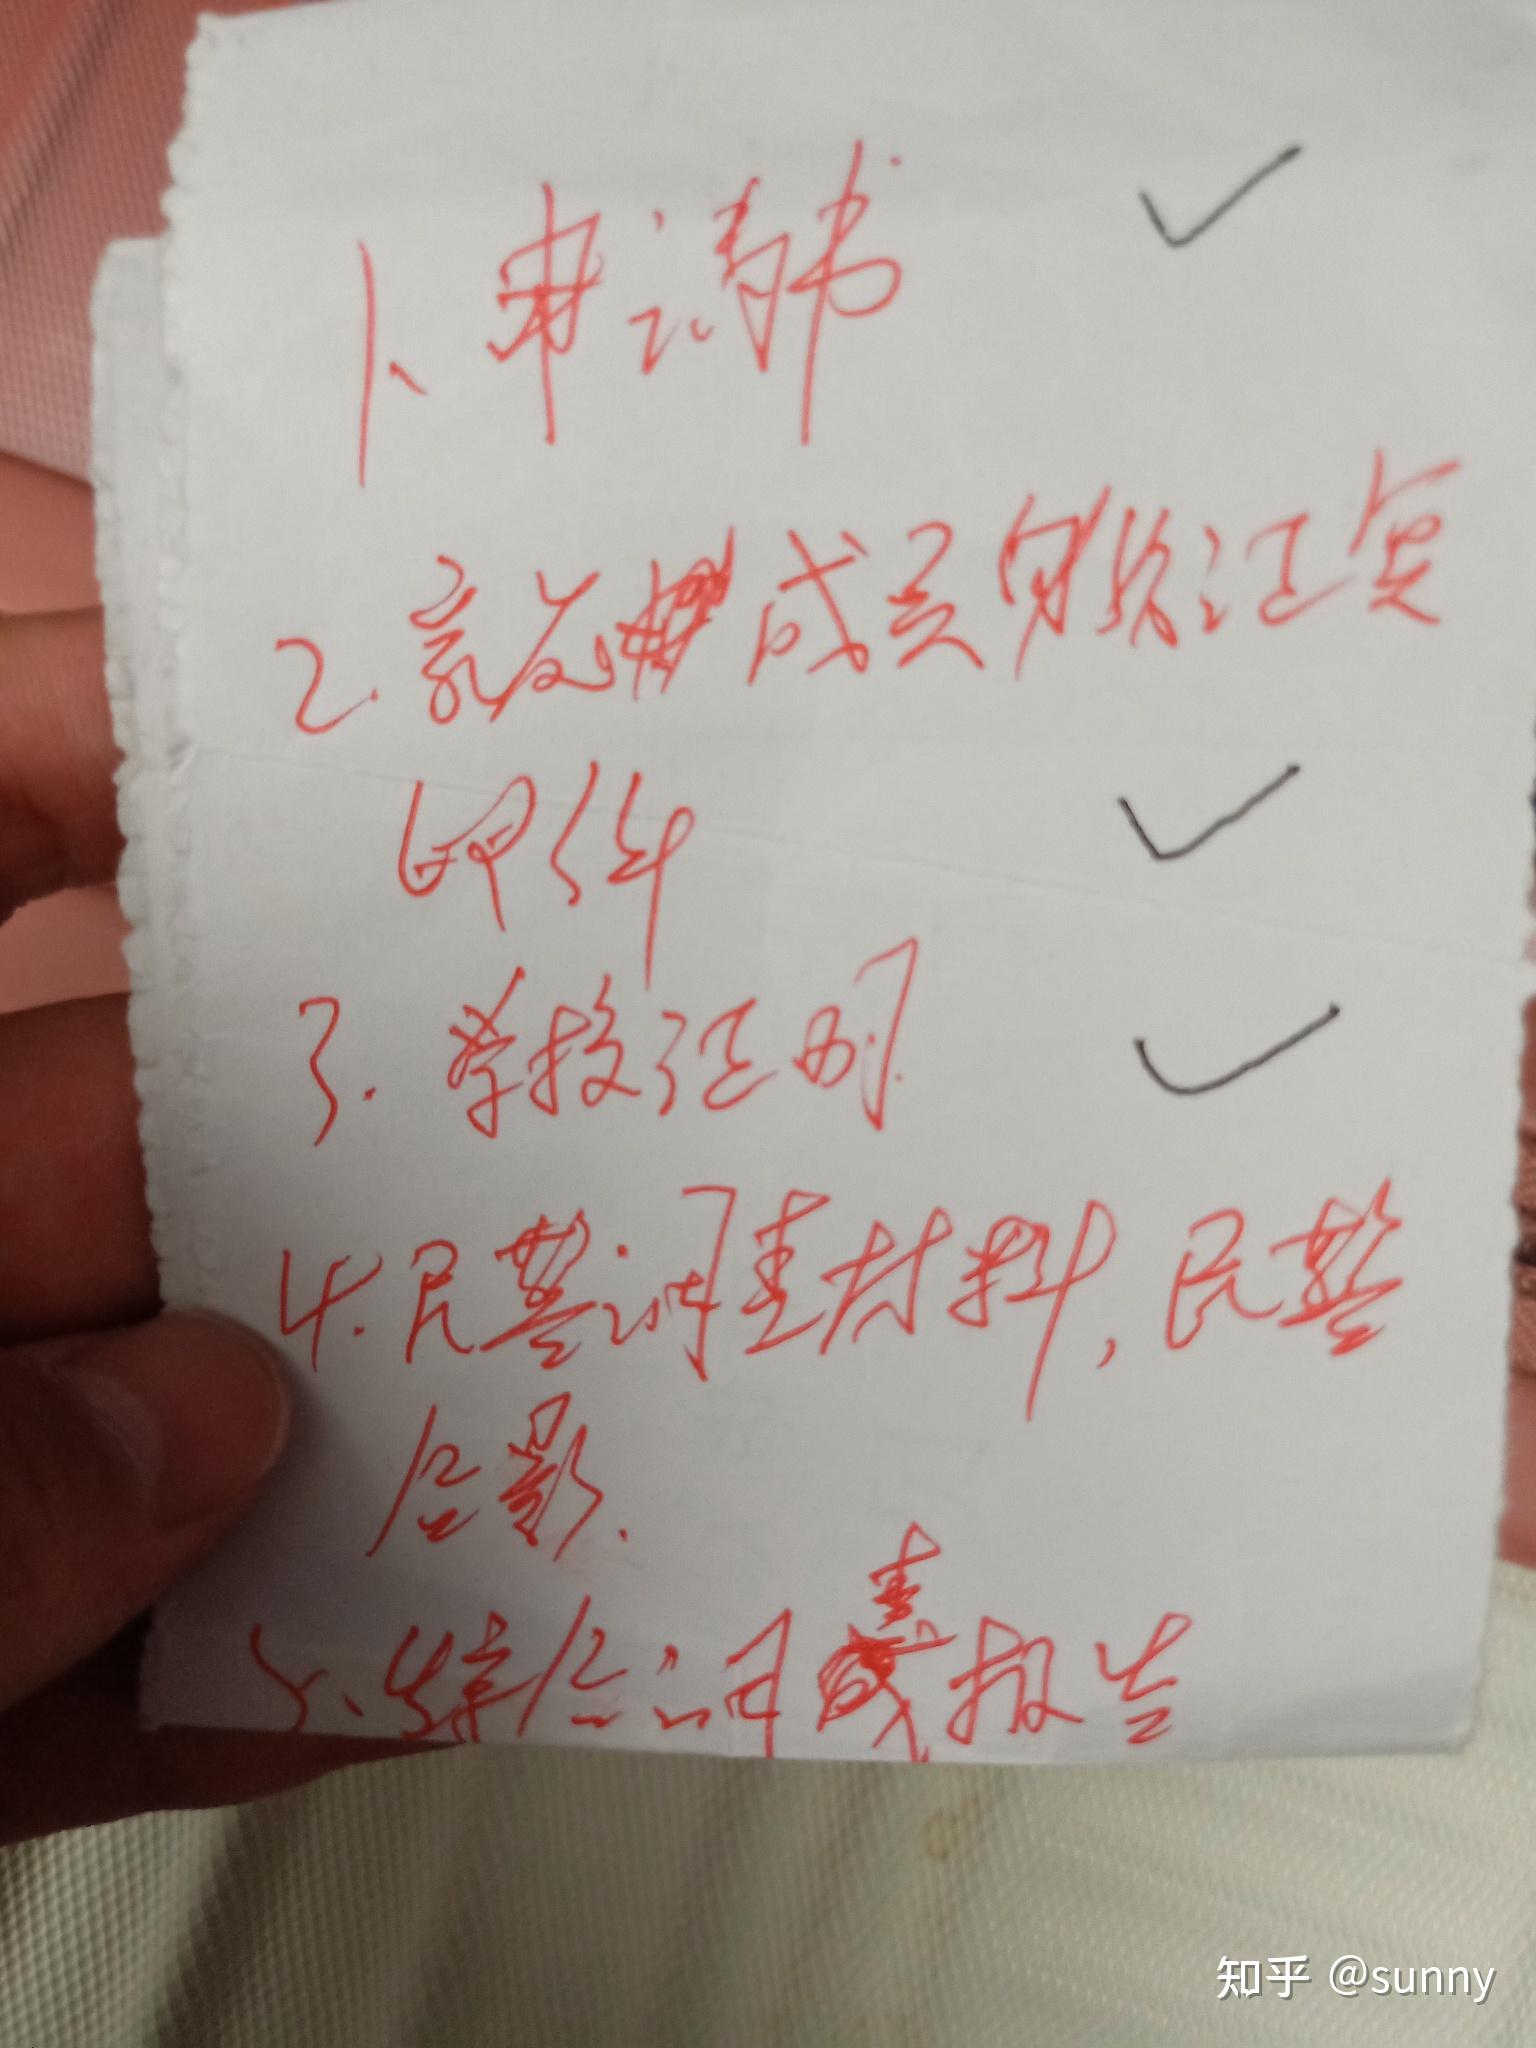 1、申请书
2.家庭成员身份证复
印件
3.学校证明
4.民警调查材料,民警
合影.
5、综合调查报告
知乎 @sunny